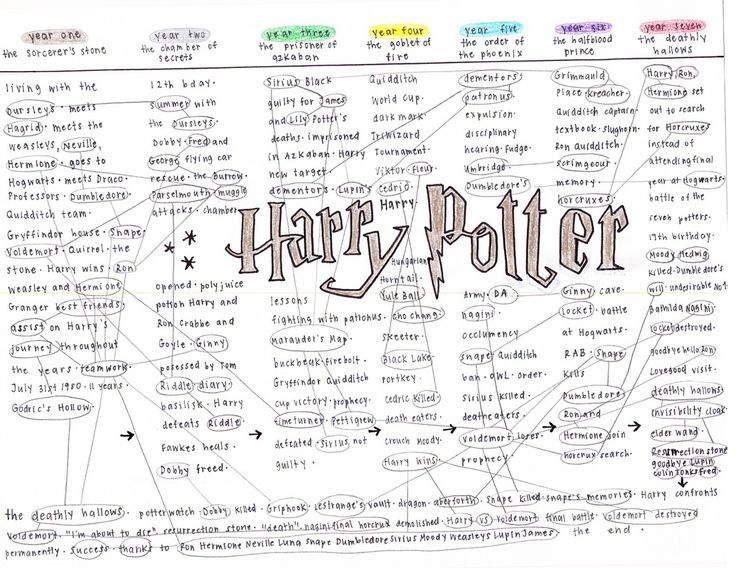 year one
the sorcerer's stone
living with the
Dursleys · meets
Hagrid · meets the
weasleys, Neville,
Hermione · goes to
Hogwarts · meets Draco ·
Professors · Dumbledore ·
Quidditch team ·
Gryffindor house · Snape ·
Voldemort · Quirrel · the
stone · Harry wins · Ron
weasley and Hermione
Granger best friends ·
assist on Harry's
journey throughout
the years · teamwork ·
July 31st 1980 · 11 years ·
Godric's Hollow ·
year two
the chamber of
secrets
12th bday ·
summer with
the Dursleys ·
Dobby · Fred and
George flying car
rescue · the Burrow ·
Parselmouth muggle
attacks · chamber
opened · polyjuice
potion Harry and
Ron Crabbe and
Goyle · Ginny
posessed by Tom
Riddle diary ·
basilisk · Harry
defeats Riddle
Fawkes heals ·
Dobby freed ·
year three
the prisoner of
azkaban
Sirius Black
guilty for James
and Lily Potter's
deaths · imprisoned
in Azkaban · Harry
new target ·
dementors · Lupin's
lessons
fighting with patronus ·
marauder's Map ·
buckbeak · firebolt ·
Gryffindor Quidditch
cup victory · prophecy ·
timeturner · Pettigrew
defeated · Sirius not
guilty ·
year four
the goblet of
fire
Quidditch
World Cup ·
dark mark ·
Triwizard
Tournament ·
Viktor · Fleur ·
Cedric
Harry
Hungarian
Horntail ·
Yule Ball ·
cho chang ·
skeeter ·
Black Lake ·
portkey ·
cedric killed ·
death eaters ·
crouch moody ·
Harry wins ·
year five
the order of
the phoenix
dementors ·
patronus ·
expulsion ·
disciplinary
hearing · Fudge ·
Umbridge ·
Dumbledore's
Army · DA ·
nagini ·
occlumency
snape · Quidditch
ban · OWL · order ·
Sirius killed ·
deatheaters ·
Voldemort loses ·
prophecy ·
year six
the halfblood
prince
Grimmauld
Place · Kreacher ·
Quidditch captain ·
textbook · slughorn ·
Ron Quidditch ·
scrimgeour ·
memory ·
horcruxes ·
Ginny · cave ·
locket · battle
at Hogwarts ·
RAB · Snape
kills
Dumbledore ·
Ron and
Hermione join
horcrux search ·
year seven
the deathly
hallows
Harry, Ron,
Hermione set
out to search
for Horcruxes
instead of
attending final
year at Hogwarts ·
battle of the
seven potters ·
17th birthday ·
Moody · Hedwig
killed · Dumbledore's
will · undesirable No 1 ·
Bathilda · Nagini
locket destroyed ·
goodbye hello Ron
Lovegood visit ·
deathly hallows ·
invisibility cloak
elder wand
Resurrection stone
goodbye Lupin
colin Tonks Fred ·
Harry Potter
the deathly hallows · potterwatch · Dobby killed · Griphook · Lestrange's vault · dragon · aberforth · Snape killed · snape's memories · Harry confronts
Voldemort · "I'm about to die" · resurrection stone · "death" · nagini final horcrux demolished · Harry vs Voldemort final battle · Voldemort destroyed
permanently · success · thanks to Ron Hermione Neville Luna Snape Dumbledore Sirius Moody Weasleys Lupin James the end ·